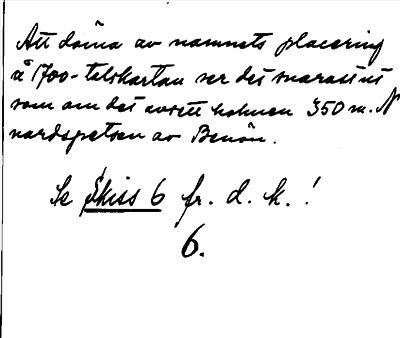 Att döma av namnets placering
å 1700-talskartan ser det snarast ut
som om det avsett holmen 350 m. N
nordspetsen av Benön.
Se Skiss 6 fr. d. k. !
6.